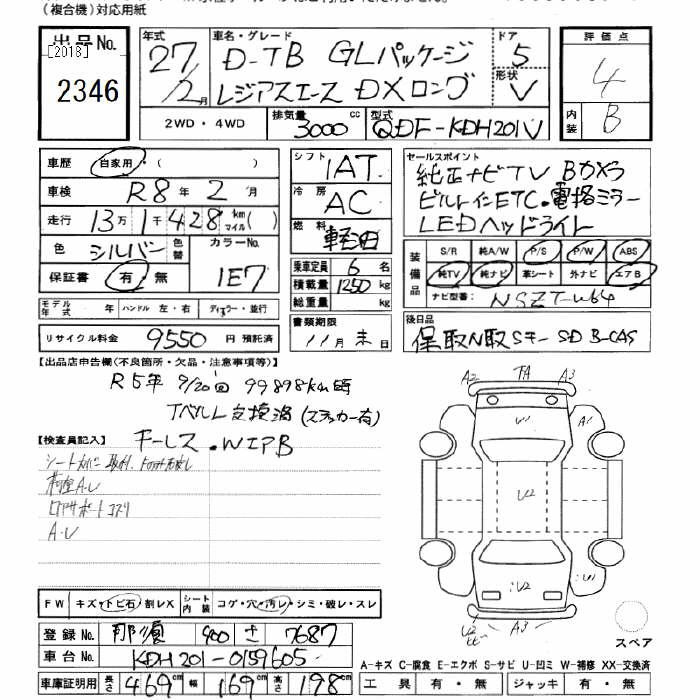 (複合機)対応用紙
出品No. 年式 車名・グレード ドア 評価点
[2013]
2346 27/2月 D-TB GLパッケージ 5 4
レジアスエース DXロング 形状 V 内装 B
2WD・4WD 排気量 3000cc 型式 QDF-KDH201V
車歴 自家用・( ) シフト 1AT セールスポイント
純正ナビTV Bカメラ
車検 R8年 2月 冷房 AC ビルトインETC・電格ミラー
走行 13万1千428km マイル( ) 燃料 軽油 LEDヘッドライト
色 シルバー 色替 カラーNo. 1E7
保証書 有・無 乗車定員 6名
積載量 1250kg
総重量 kg
装備品 S/R 純A/W P/S P/W ABS
純TV 純ナビ 革シート 外ナビ エアB
ナビ型番: NSZT-W64
モデル年式 年 ハンドル 左・右 ディーラー・並行
書類期限 11月末日
後日品
リサイクル料金 9550円 預託済 保取N取 Sキー SD B-CAS
【出品店申告欄(不良箇所・欠品・注意事項等)】
R5年 9/20 99898km時
Tベルト交換済(ステッカー有)
キーレス・WIPB
【検査員記入】
シートカバー取付
荷室A・U
リアサポートコスリ
A・U
A2 TA A3
U1 A1
U2
U2 U1
A3
FW キズ・トビ石・割レX シート内装 コゲ・穴・汚レ・シミ・破レ・スレ
スペア
登録No. 那須 400 さ 7687
車台No. KDH201-0159605
A-キズ C-腐食 E-エクボ S-サビ U-凹ミ W-補修 XX-交換済
車庫証明用 長さ 469cm 幅 169cm 高さ 198cm 工具 有・無 ジャッキ 有・無